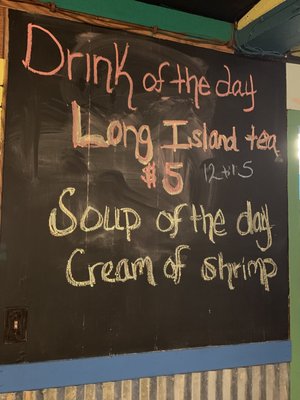 Drink of the day
Long Island tea
$5 12 til 5
Soup of the day
Cream of shrimp